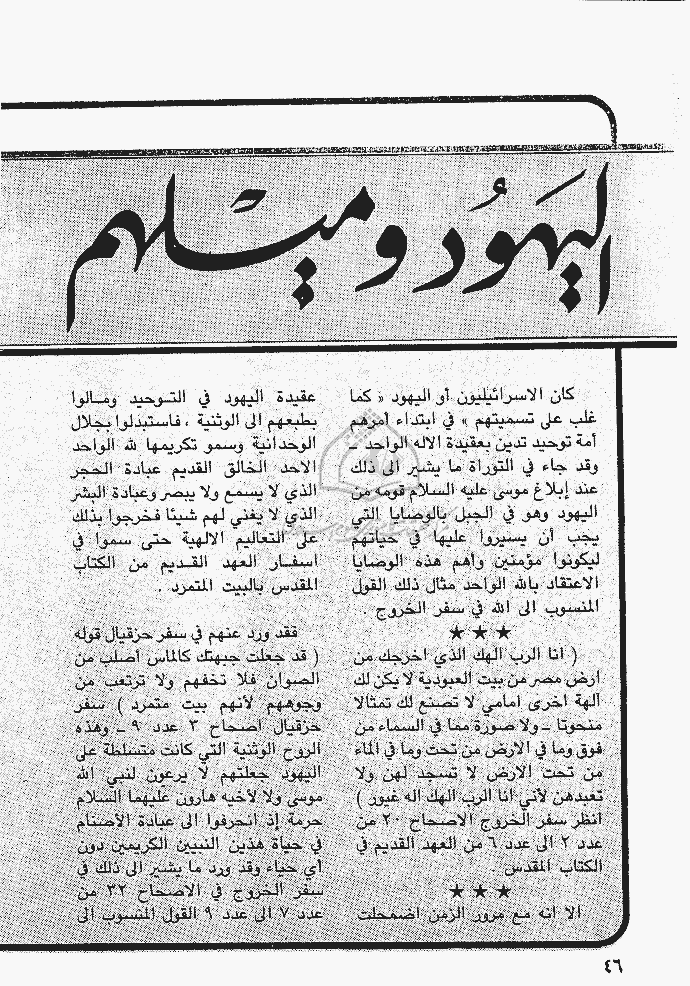 اليَهُود وميثلهم
كان الاسرائيليون أو اليهود « كما
غلب على تسميتهم » في ابتداء أمرهم
أمة توحيد تدين بعقيدة الاله الواحد ــ
وقد جاء في التوراة ما يشير الى ذلك
عند إبلاغ موسى عليه السلام قومه من
اليهود وهو في الجبل بالوصايا التي
يجب أن يسيروا عليها في حياتهم
ليكونوا مؤمنين وأهم هذه الوصايا
الاعتقاد بالله الواحد مثال ذلك القول
المنسوب الى الله في سفر الخروج .
★ ★ ★
( أنا الرب الهك الذي اخرجك من
ارض مصر من بيت العبودية لا يكن لك
آلهة اخرى امامي لا تصنع لك تمثالا
منحوتا ــ ولا صورة مما في السماء من
فوق وما في الارض من تحت وما في الماء
من تحت الارض لا تسجد لهن ولا
تعبدهن لأني انا الرب الهك اله غيور )
انظر سفر الخروج الاصحاح ٢٠ من
عدد ٢ الى عدد ٦ من العهد القديم في
الكتاب المقدس .
★ ★ ★
الا انه مع مرور الزمن اضمحلت
عقيدة اليهود في التوحيد ومالوا
بطبعهم الى الوثنية ، فاستبدلوا بجلال
الوحدانية وسمو تكريمها لله الواحد
الاحد الخالق القديم عبادة الحجر
الذي لا يسمع ولا يبصر وعبادة البشر
الذي لا يغني لهم شيئا فخرجوا بذلك
على التعاليم الالهية حتى سموا في
اسفار العهد القديم من الكتاب
المقدس بالبيت المتمرد .
فقد ورد عنهم في سفر حزقيال قوله
( قد جعلت جبهتك كالماس أصلب من
الصوان فلا تخفهم ولا ترتعب من
وجوههم لأنهم بيت متمرد ) سفر
حزقيال اصحاح ٣ عدد ٩ ــ وهذه
الروح الوثنية التي كانت متسلطة على
اليهود جعلتهم لا يرعون لنبي الله
موسى ولا لأخيه هارون عليهما السلام
حرمة إذ انحرفوا الى عبادة الأصنام
في حياة هذين النبيين الكريمين دون
أي حياء وقد ورد ما يشير الى ذلك في
سفر الخروج في الاصحاح ٣٢ من
عدد ٧ الى عدد ٩ القول المنسوب الى
٤٦